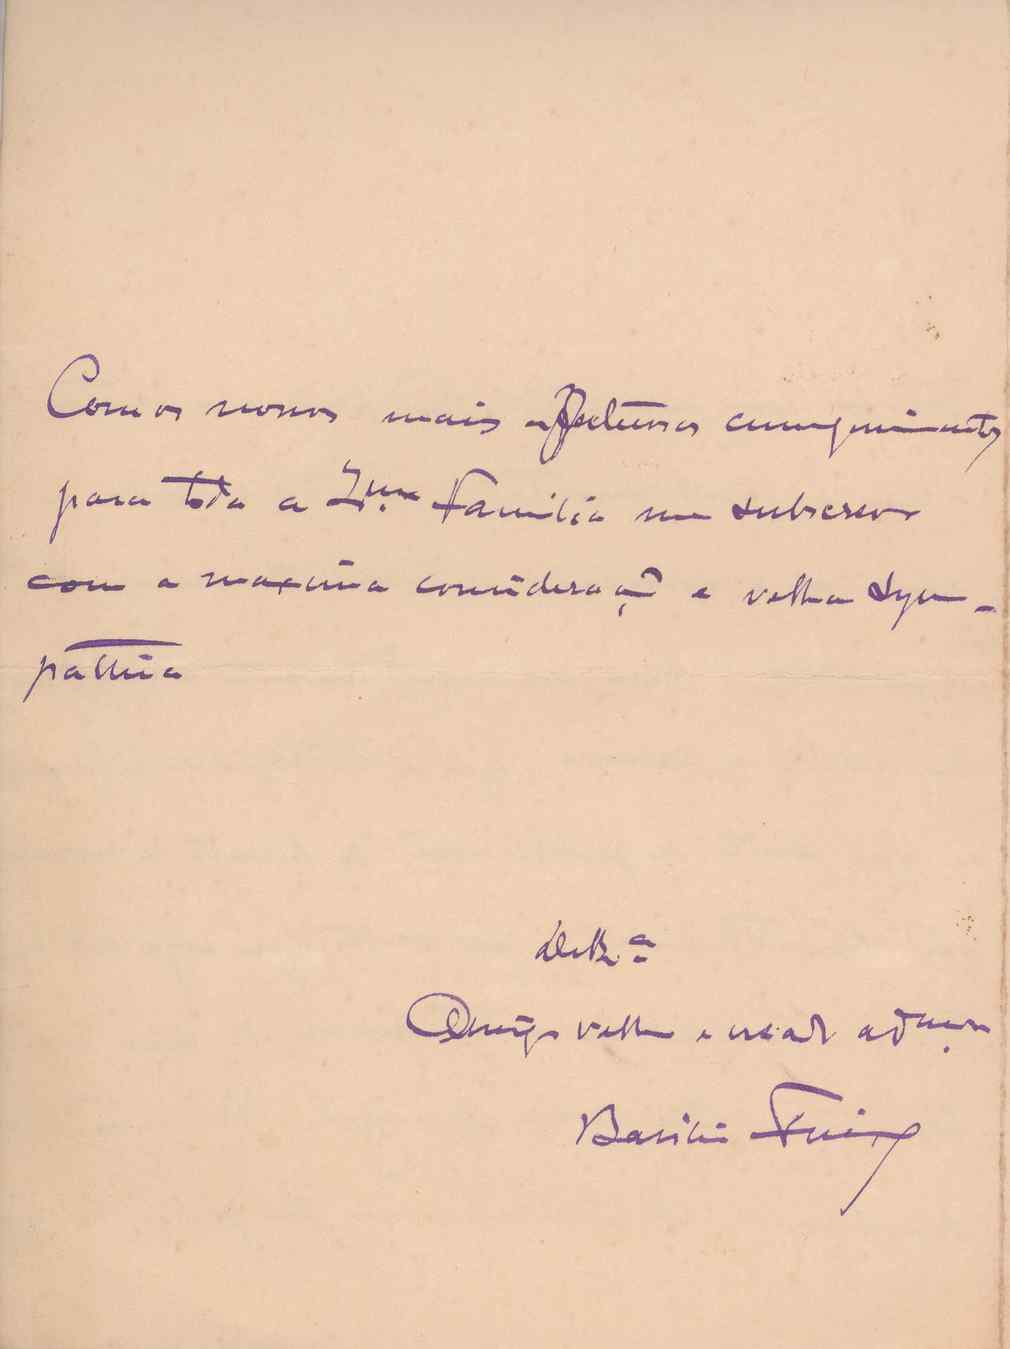 Com os nossos mais affectuosos cumprimentos
para toda a Ex.ma Familia me subscrevo
com a maxima consideração e velha sym-
pathia
de V. Ex.ª
Amigo velho e creado
Basilio Freire